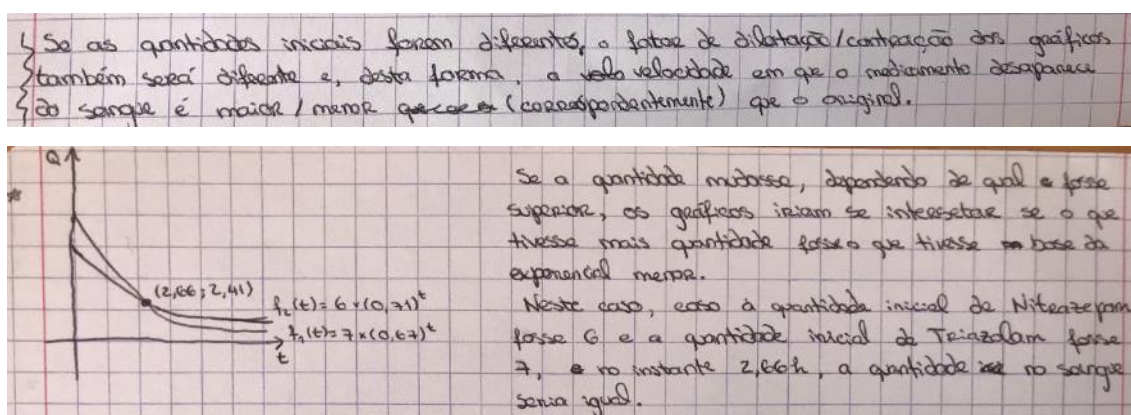 Se as quantidades iniciais forem diferentes, o fator de dilatação/contração dos gráficos
também será diferente e, desta forma, a velocidade em que o medicamento desaparece
do sangue é maior/menor (correspondentemente) que o original.
Q
(2,66; 2,41)
f₂(t)=6×(0,71)ᵗ
f₁(t)=7×(0,67)ᵗ
t
Se a quantidade mudasse, dependendo de qual fosse
superior, os gráficos iriam se intersetar se o que
tivesse mais quantidade fosse o que tivesse base da
exponencial menor.
Neste caso, caso a quantidade inicial de Nitrazepam
fosse 6 e a quantidade inicial de Triazolam fosse
7, no instante 2,66h, a quantidade no sangue
seria igual.